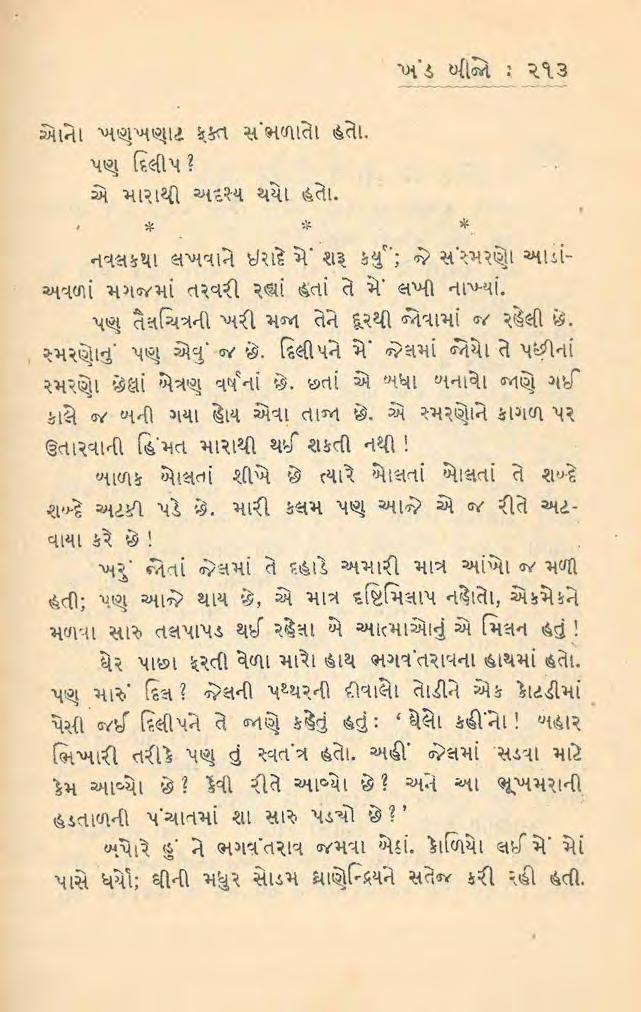 ખંડ બીજો : ૨૧૩
એનો ખણખણાટ ફક્ત સંભળાતો હતો.
પણ દિલીપ?
એ મારાથી અદૃશ્ય થયો હતો.
* * *
નવલકથા લખવાને ઇરાદે મેં શરૂ કર્યું; જે સંસ્મરણો આડાં-
અવળાં મગજમાં તરવરી રહ્યાં હતાં તે મેં લખી નાખ્યાં.
પણ તૈલચિત્રની ખરી મજા તેને દૂરથી જોવામાં જ રહેલી છે.
સ્મરણોનું પણ એવું જ છે. દિલીપને મેં જેલમાં જોયો તે પછીનાં
સ્મરણો છેલ્લાં બેત્રણ વર્ષનાં છે. છતાં એ બધા બનાવો જાણે ગઈ
કાલે જ બની ગયા હોય એવા તાજા છે. એ સ્મરણોને કાગળ પર
ઉતારવાની હિંમત મારાથી થઈ શકતી નથી!
બાળક બોલતાં શીખે છે ત્યારે બોલતાં બોલતાં તે શબ્દે
શબ્દે અટકી પડે છે. મારી કલમ પણ આજે એ જ રીતે અટ-
વાયા કરે છે!
ખરું જોતાં જેલમાં તે દહાડે અમારી માત્ર આંખો જ મળી
હતી; પણ આજે થાય છે, એ માત્ર દૃષ્ટિમિલાપ નહોતો, એકમેકને
મળવા સારુ તલપાપડ થઈ રહેલા બે આત્માઓનું એ મિલન હતું!
ઘેર પાછા ફરતી વેળા મારો હાથ ભગવંતરાવના હાથમાં હતો.
પણ મારું દિલ? જેલની પથ્થરની દીવાલો તોડીને એક કોટડીમાં
પેસી જઈ દિલીપને તે જાણે કહેતું હતું: ‘ઘેલો કહીંનો! બહાર
ભિખારી તરીકે પણ તું સ્વતંત્ર હતો. અહીં જેલમાં સડવા માટે
કેમ આવ્યો છે? કેવી રીતે આવ્યો છે? અને આ ભૂખમરાની
હડતાળની પંચાતમાં શા સારુ પડ્યો છે?’
બપોરે હું ને ભગવંતરાવ જમવા બેઠાં. કોળિયો લઈ મેં મોં
પાસે ધર્યો; ઘીની મધુર સોડમ ઘ્રાણેન્દ્રિયને સતેજ કરી રહી હતી.